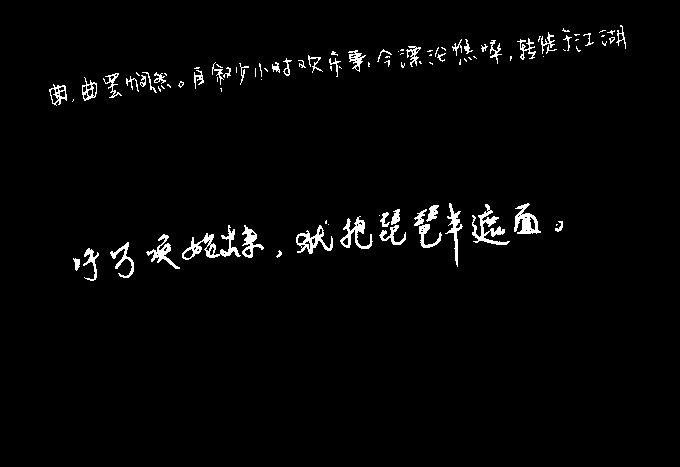 曲,曲罢悯然。自叙少小时欢乐事,今漂沦憔悴,转徙于江湖
呼万唤始出来,犹抱琵琶半遮面。